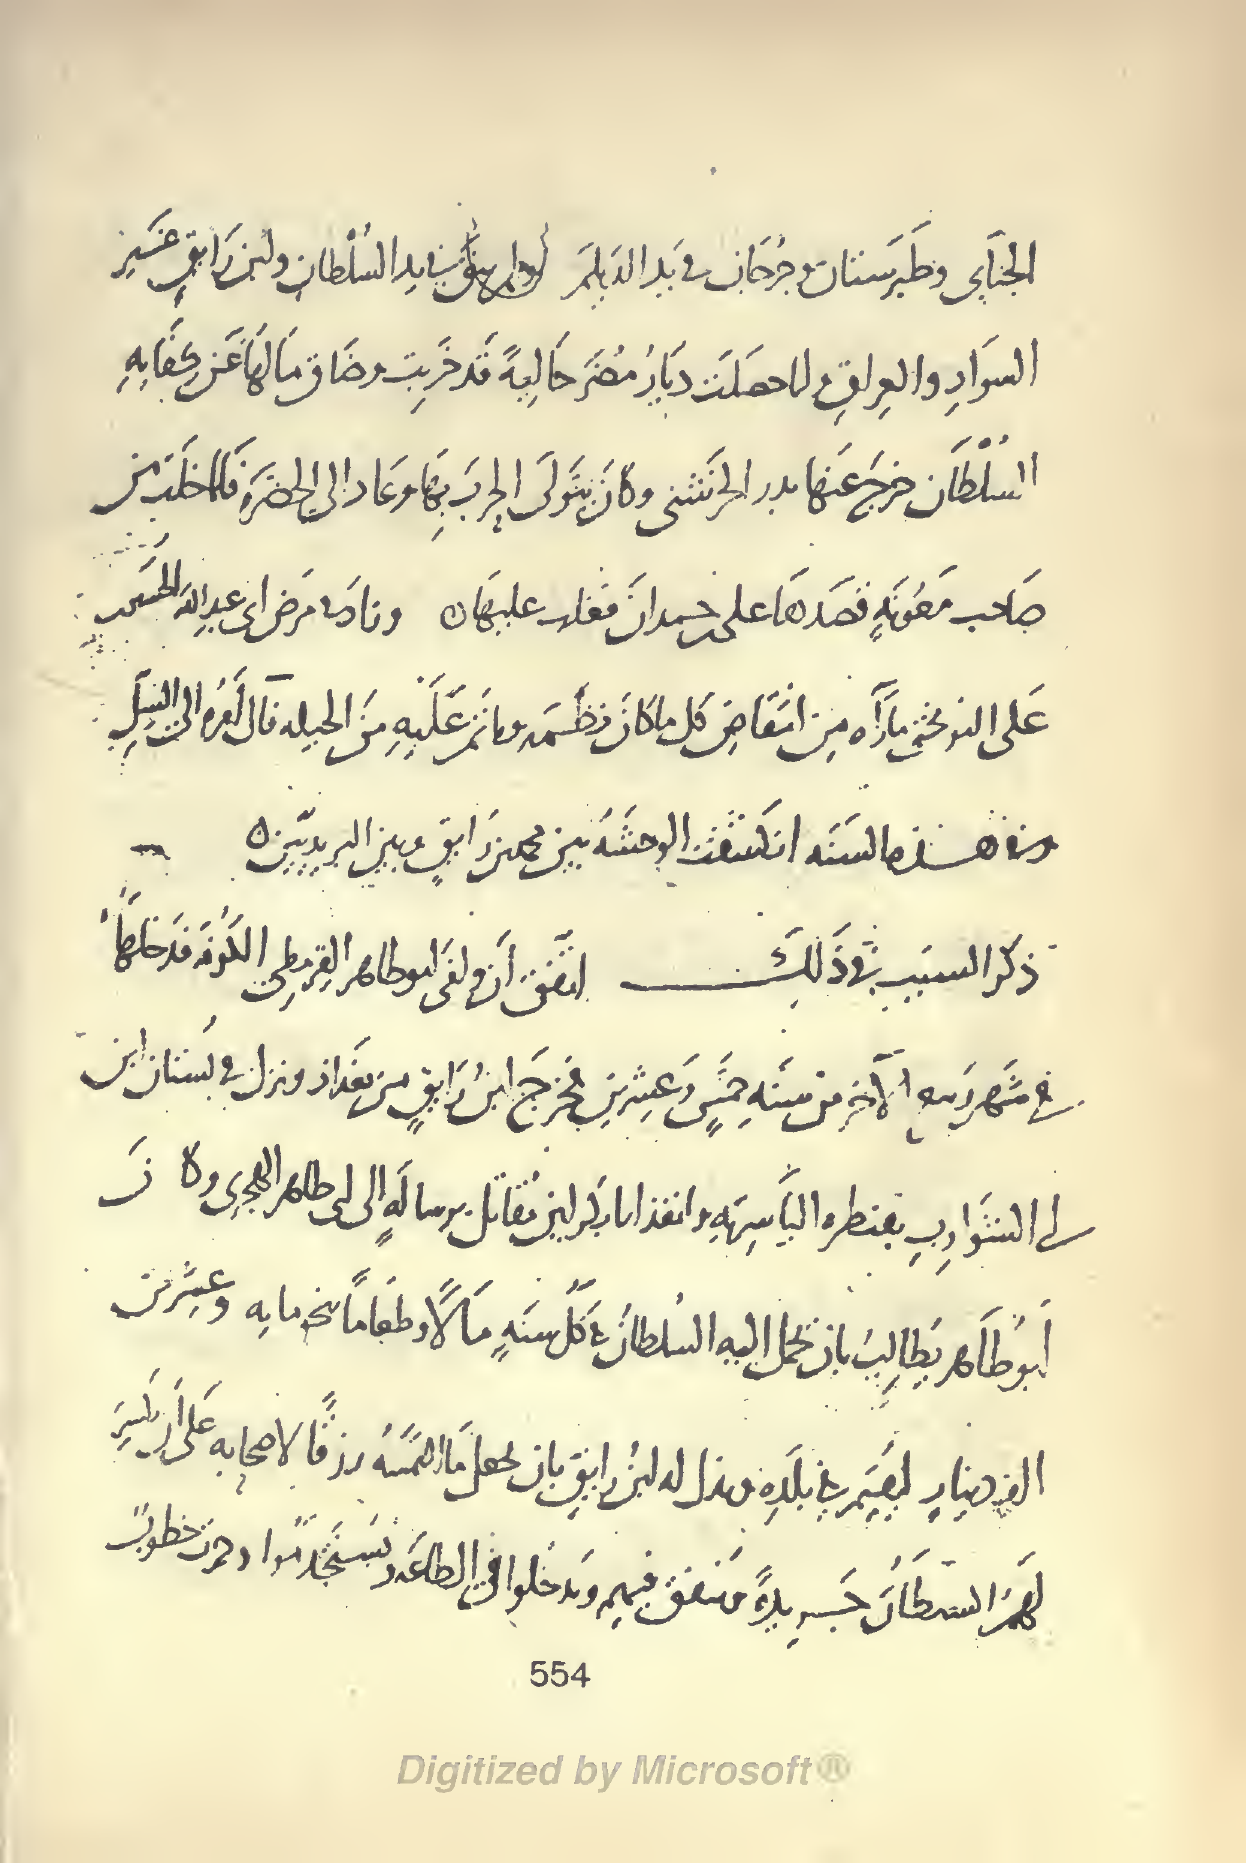 الجنابي وطبرستان وجرجان في يد الديلم ولم يبق في يد السلطان وابن رائق غير
السواد والعراق ولما حصلت ديار مضر خالية قد خربت وضاق مالها عن كفاية
السلطان خرج عنها بدر الخرشني وكان يتولى الحرب بها وعاد الى الحضرة فلما خلت من
صاحب معونة قصدها علي بن حمدان فغلب عليها ٥ عبد الله الحسين
على النوبختي من انتقاض كل ما كان نظمه وما تم عليه من الحيلة الى السل
وفي هذه السنة انكشفت الوحشة بين محمد بن رائق وبين البريديين ٥
ذكر السبب في ذلك اتفق أن وافى ابو طاهر القرمطي الكوفة فدخلها
في شهر ربيع الآخر من سنة خمس وعشرين فخرج ابن رائق من بغداد ونزل في بستان ابن
ابي الشوارب بقنطرة الياسرية وانفذ ابا بكر ابن مقاتل برسالة الى ابي طاهر الهجري وكان
أبو طاهر يطالب بان يحمل اليه السلطان في كل سنة مالاً وطعاماً بنحو مايه وعشرين
الف دينار ليقيم في بلده وبذل له ابن رائق بان يجعل ما التمسه رزقاً لاصحابه على أن
لهم السلطان جريدة وينفق فيهم ويدخلوا في الطاعة ويستخدموا وجرت خطوب
554
Digitized by Microsoft®